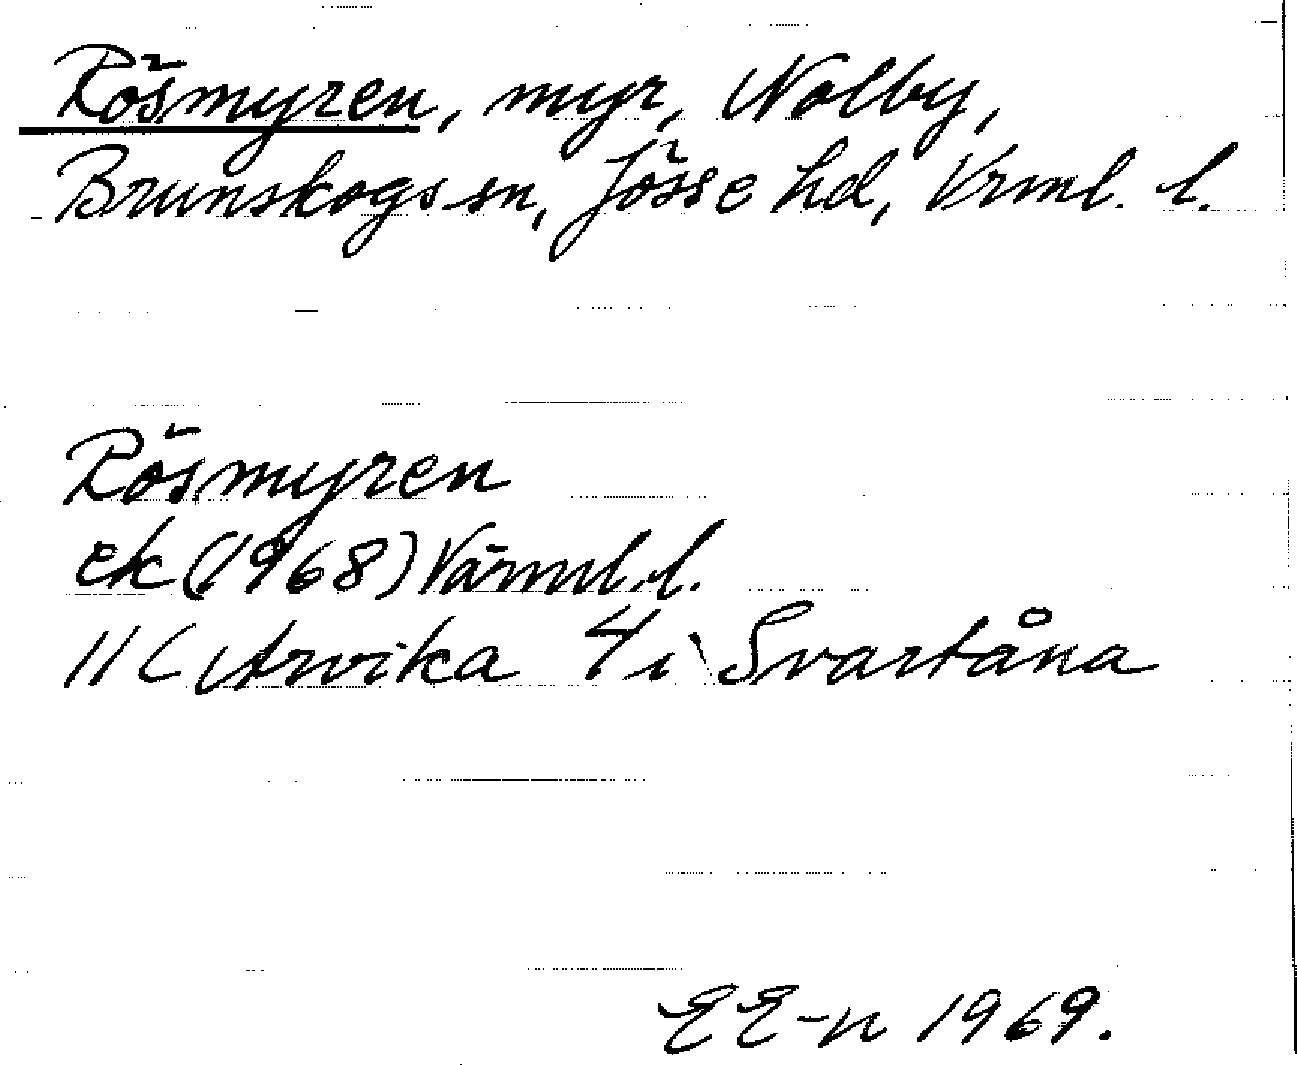 Rösmyren, myr, Nolby,
Brunskogs sn, Jösse hd, Vrml. l.
Rösmyren
ek (1968) Värml. l.
11 C Arvika 4 i Svartåna
EE-n 1969.